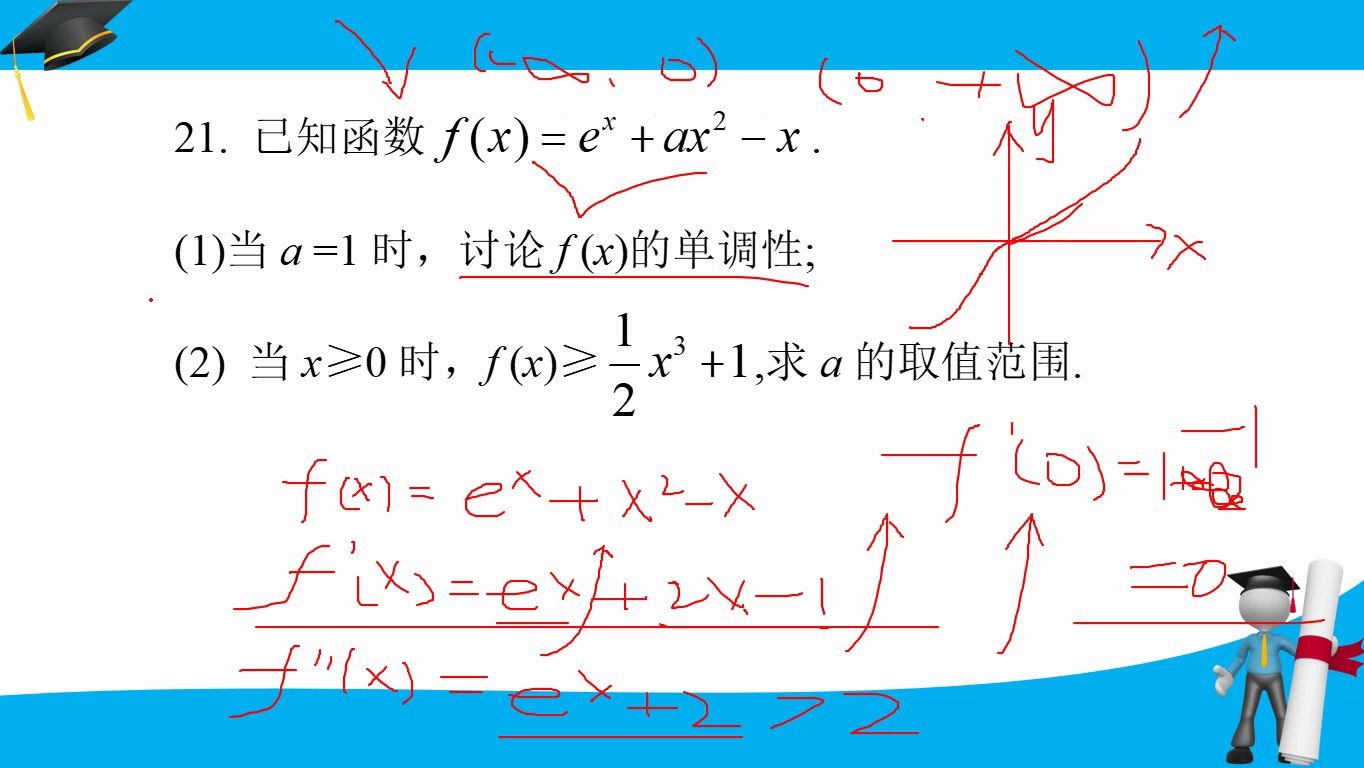 (-∞, 0) (0 +∞)
y
21. 已知函数 f(x) = eˣ + ax² − x .
(1)当 a =1 时，讨论 f (x)的单调性;
x
(2) 当 x≥0 时，f (x)≥ 1/2 x³ +1,求 a 的取值范围.
f(x) = eˣ + x² − x
f'(0) = 1 − 1
f'(x) = eˣ + 2x − 1
= 0
f''(x) = eˣ + 2 > 2